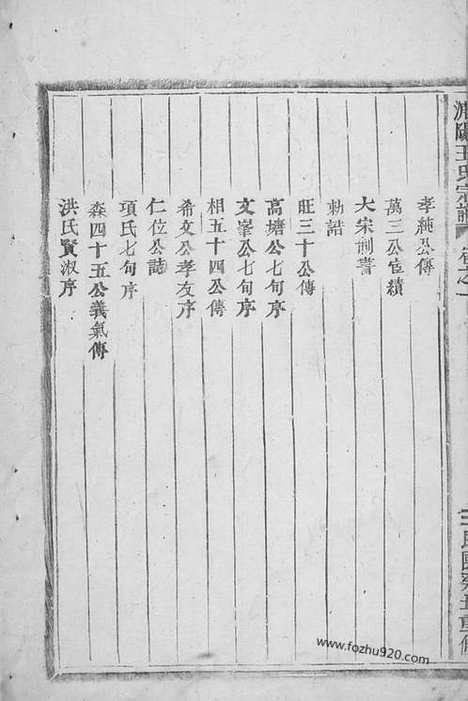 浦陽王氏宗譜 卷之一
民國癸丑重修
孝純公傳
萬三公宦績
大宋制書
勅誥
旺三十公傳
高塘公七旬序
文峯公七旬序
相五十四公傳
希文公孝友序
仁位公誌
項氏七旬序
森四十五公義氣傳
洪氏賢淑序
www.fozhu920.com